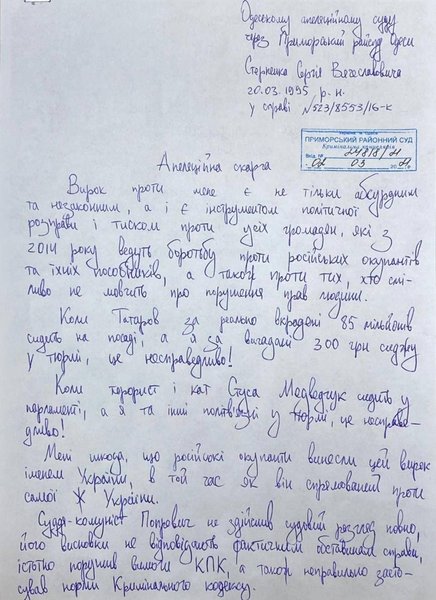 Одеському апеляційному суду
через Приморський райсуд Одеси
Стерненка Сергія Вячеславовича
20.03.1995 р.н.
у справі №523/8553/16-к
Україна м. Одеса
ПРИМОРСЬКИЙ РАЙОННИЙ СУД
Кримінальна канцелярія
Вхід. №
02 03
Апеляційна скарга
Вирок проти мене є не тільки абсурдним
та незаконним, а і є інструментом політичної
розправи і тиском проти усіх громадян, які з
2014 року ведуть боротьбу проти російських окупантів
та їхніх пособників, а також проти тих, хто смі-
ливо не мовчить про порушення прав людини.
Коли Татаров за реально вкрадені 85 мільйонів
сидить на посаді, а я за вигадані 300 грн сиджу
у тюрмі, це несправедливо!
Коли терорист і кат Стуса Медведчук сидить у
парламенті, а я та інші політв'язні у тюрмі, це несправе-
дливо!
Мені шкода, що російські окупанти винесли цей вирок
іменем України, в той час як він спрямований проти
самої ж України.
Суддя-комуніст Попревич не здійснив судовий розгляд повно,
його висновки не відповідають фактичним обставинам справи,
істотно порушив вимоги КПК, а також неправильно засто-
сував норми Кримінального кодексу.